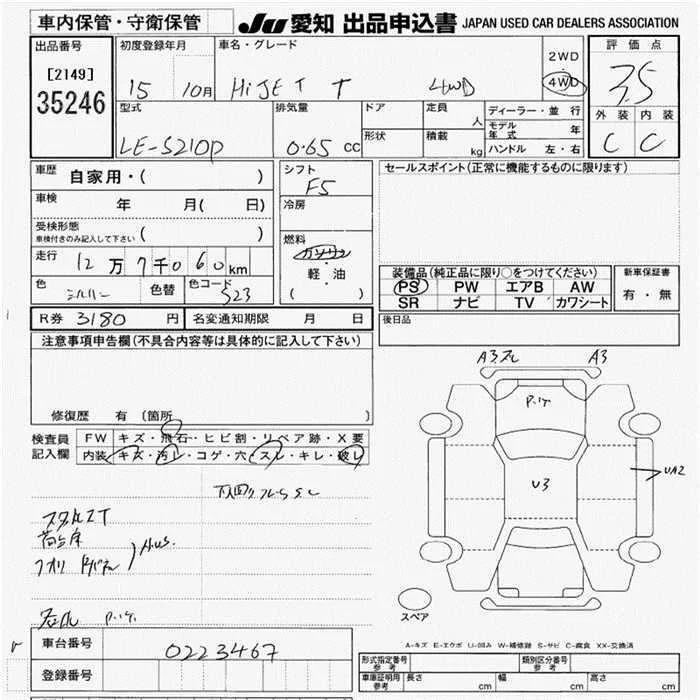 車内保管・守衛保管
JU 愛知 出品申込書 JAPAN USED CAR DEALERS ASSOCIATION
出品番号
[2149]
35246
初度登録年月
15 10月
車名・グレード
HiJET T 4WD
2WD
4WD
評価点
3.5
外装 内装
C C
型式
LE-S210P
排気量
0.65 CC
ドア
形状
定員
人
積載
kg
ディーラー・並行
モデル年式 年
ハンドル 左・右
車歴 自家用・( )
車検 年 月( 日)
受検形態
車検付きのみ記入して下さい ( )
走行 12万7千060km
色 シルバー 色替 色コード S23
シフト
F5
冷房
燃料
ガソリン
・
軽・油
( )
セールスポイント(正常に機能するものに限ります)
装備品(純正品に限り〇をつけてください)
PS PW エアB AW
SR ナビ TV カワシート
新車保証書
有・無
R券 3180 円 名変通知期限 月 日
後日品
注意事項申告欄(不具合内容等は具体的に記入して下さい)
修復歴 有(箇所 )
検査員
記入欄
FW キズ・飛石・ヒビ割・リペア跡・X要
内装 キズ・汚レ・コゲ・穴・スレ・キレ・破レ
A3 スレ A3
P.ケ
U3
UA2
スペア
A-キズ E-エクボ U-凹み W-補修跡 S-サビ C-腐食 XX-交換済
車台番号 0223467
登録番号
形式指定番号
参考
類別区分番号
参考
車庫証明用
参考
長さ cm 幅 cm 高さ cm